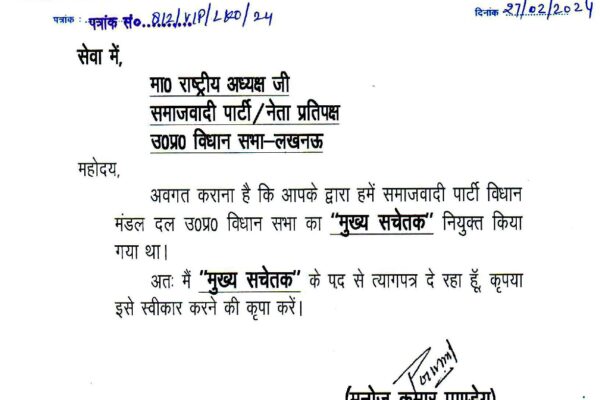 पत्रांक : पत्रांक सं०. 812/VIP/LKO/24 दिनांक 27/02/2024
सेवा में,
मा0 राष्ट्रीय अध्यक्ष जी
समाजवादी पार्टी/नेता प्रतिपक्ष
उ0प्र0 विधान सभा–लखनऊ
महोदय,
अवगत कराना है कि आपके द्वारा हमें समाजवादी पार्टी विधान
मंडल दल उ0प्र0 विधान सभा का "मुख्य सचेतक" नियुक्त किया
गया था।
अतः मैं "मुख्य सचेतक" के पद से त्यागपत्र दे रहा हूँ, कृपया
इसे स्वीकार करने की कृपा करें।
(मनोज कुमार पाण्डेय)